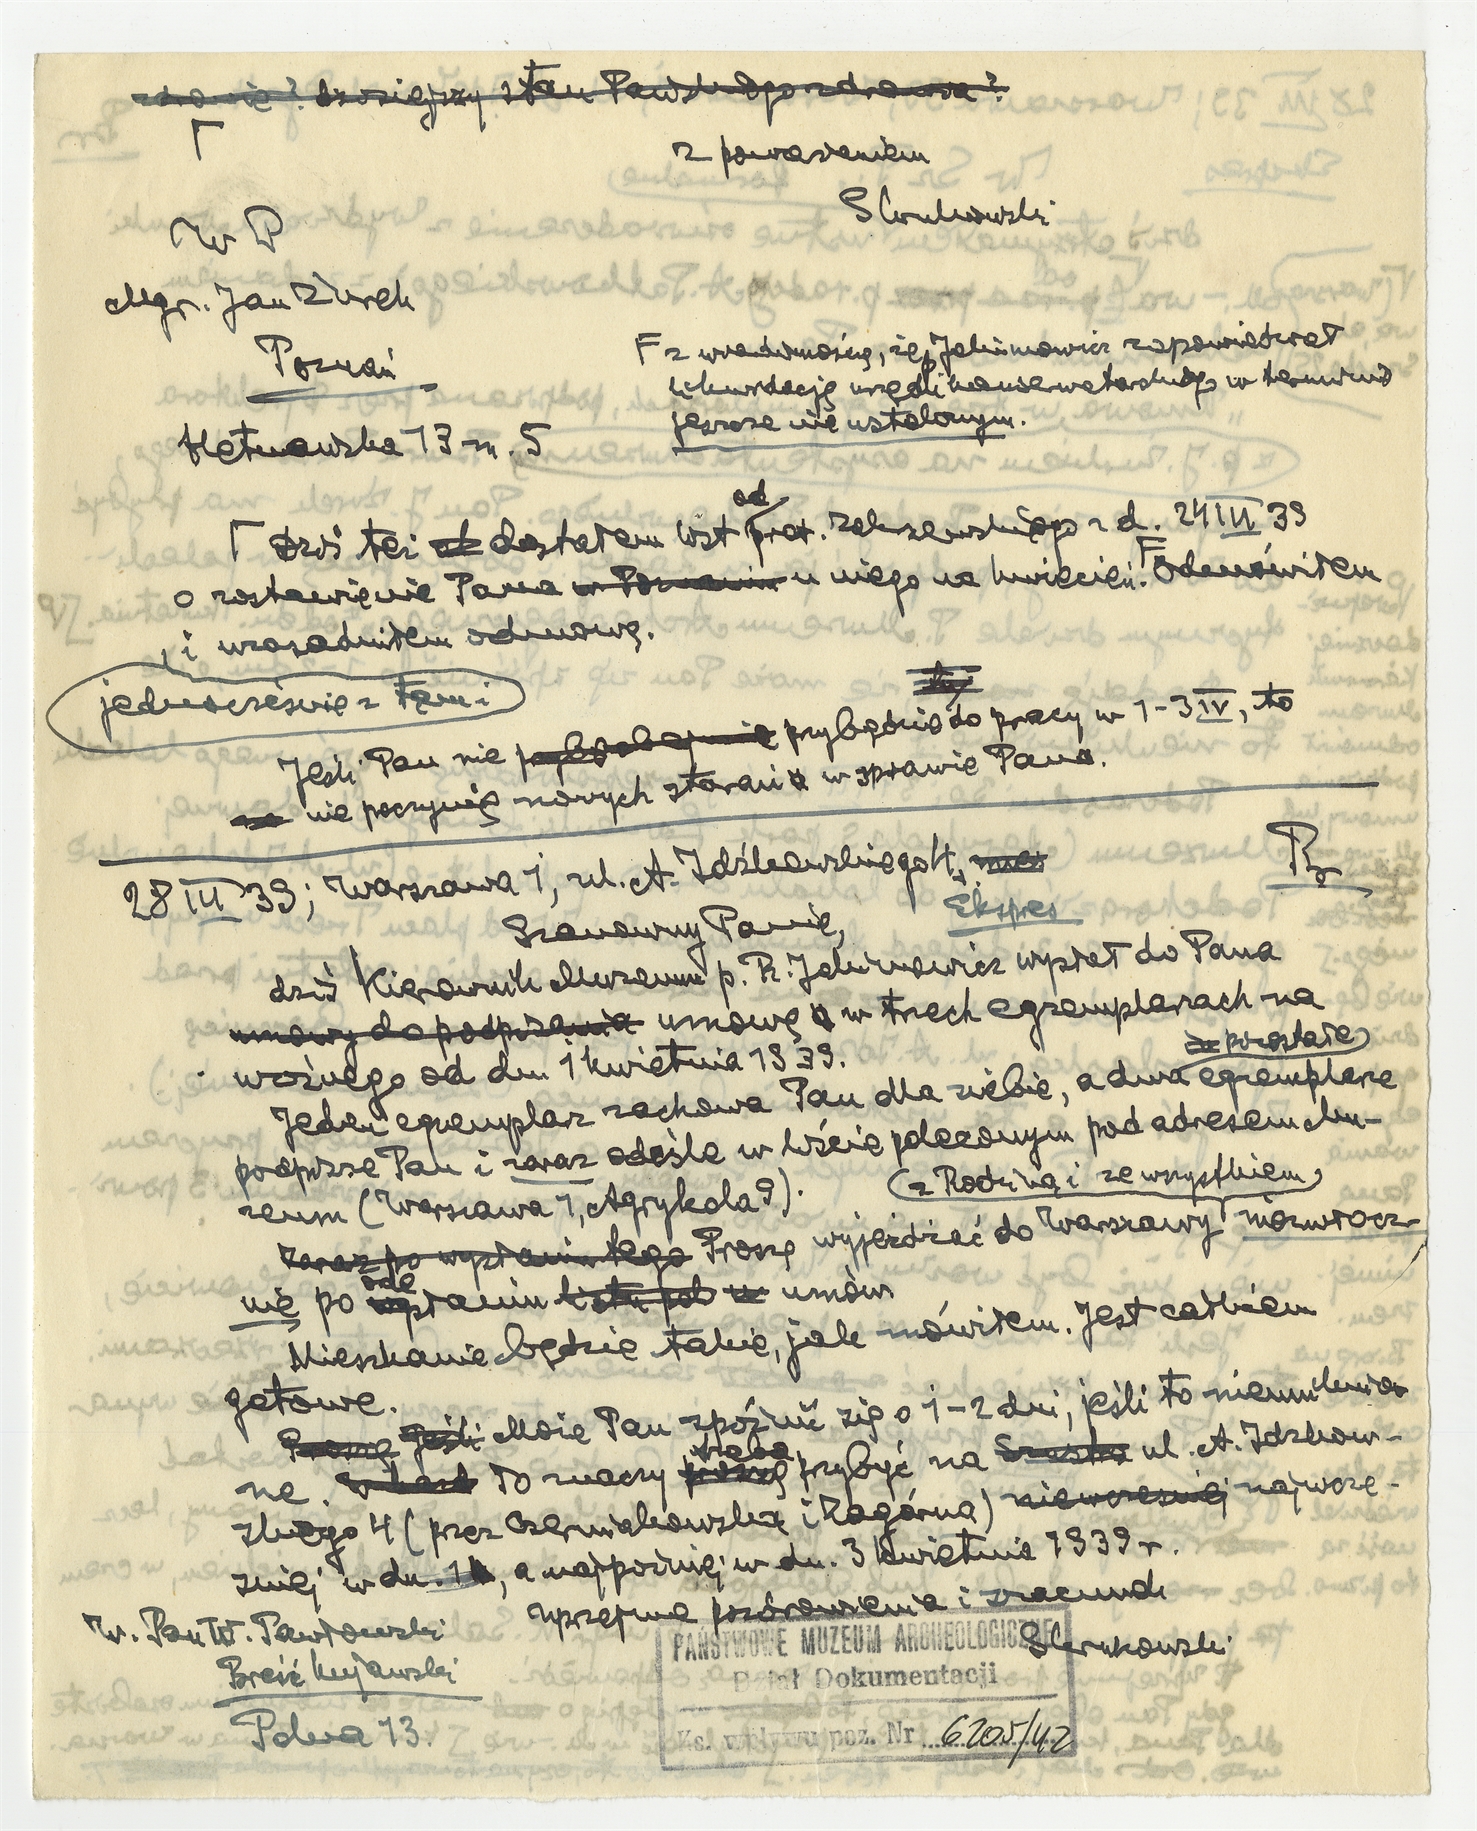 zdrowie? dzisiejszy stan Pańskiego zdrowia?
Γ
z poważaniem
S Krukowski
W P
Mgr. Jan Żurek
Poznań
Hetmańska 13 m. 5
F z wiadomością, że p. Jakimowicz zapowiedział
likwidację urzęd. konserwatorskiego w terminie
jeszcze nie ustalonym.
od
Γ Dziś też dostałem list prof. Zakrzewskiego z d. 24 III 39
o zostawienie Pana w Poznaniu u niego na kwiecień. F Odmówiłem
i uzasadniłem odmowę.
jednocześnie z tem i
Jeśli Pan nie przybędzie do pracy w 1-3 IV, to
nie poczynię nowych starań w sprawie Pana.
28 III 39; Warszawa 1, ul. A. Idźkowskiego 4,
Ekspres
Szanowny Panie,
dziś Kierownik Muzeum p. R. Jakimowicz wysłał do Pana
umowy do podpisania umowę w trzech egzemplarzach na
woźnego od dn. 1 kwietnia 1939.
pozostałe
Jeden egzemplarz zachowa Pan dla siebie, a dwa egzemplarze
podpisze Pan i zaraz odeśle w liście poleconym pod adresem Mu-
zeum (Warszawa 1, Agrykola 9).
(z Rodziną i ze wszystkiem)
Zaraz po wysłaniu tego Proszę wyjeżdżać do Warszawy niezwłocz-
nie po odesłaniu umów
Mieszkanie będzie takie, jak mówiłem. Jest całkiem
gotowe.
Proszę Jeśli Może Pan spóźnić się o 1-2 dni, jeśli to nieuniknio-
ne. To znaczy trzeba przybyć na ul. A. Idźkow-
skiego 4 (przez Czerniakowską i Zagórną) niewcześniej najwcze-
śniej w dn. 1, a najpóźniej w dn. 3 kwietnia 1939 r.
Uprzejme pozdrowienia i szacunek
S Krukowski
W. Pan W. Pawłowski
Brześć Kujawski
Polna 13.
PAŃSTWOWE MUZEUM ARCHEOLOGICZNE
Dział Dokumentacji
Ks. wpływu poz. Nr 6205/42